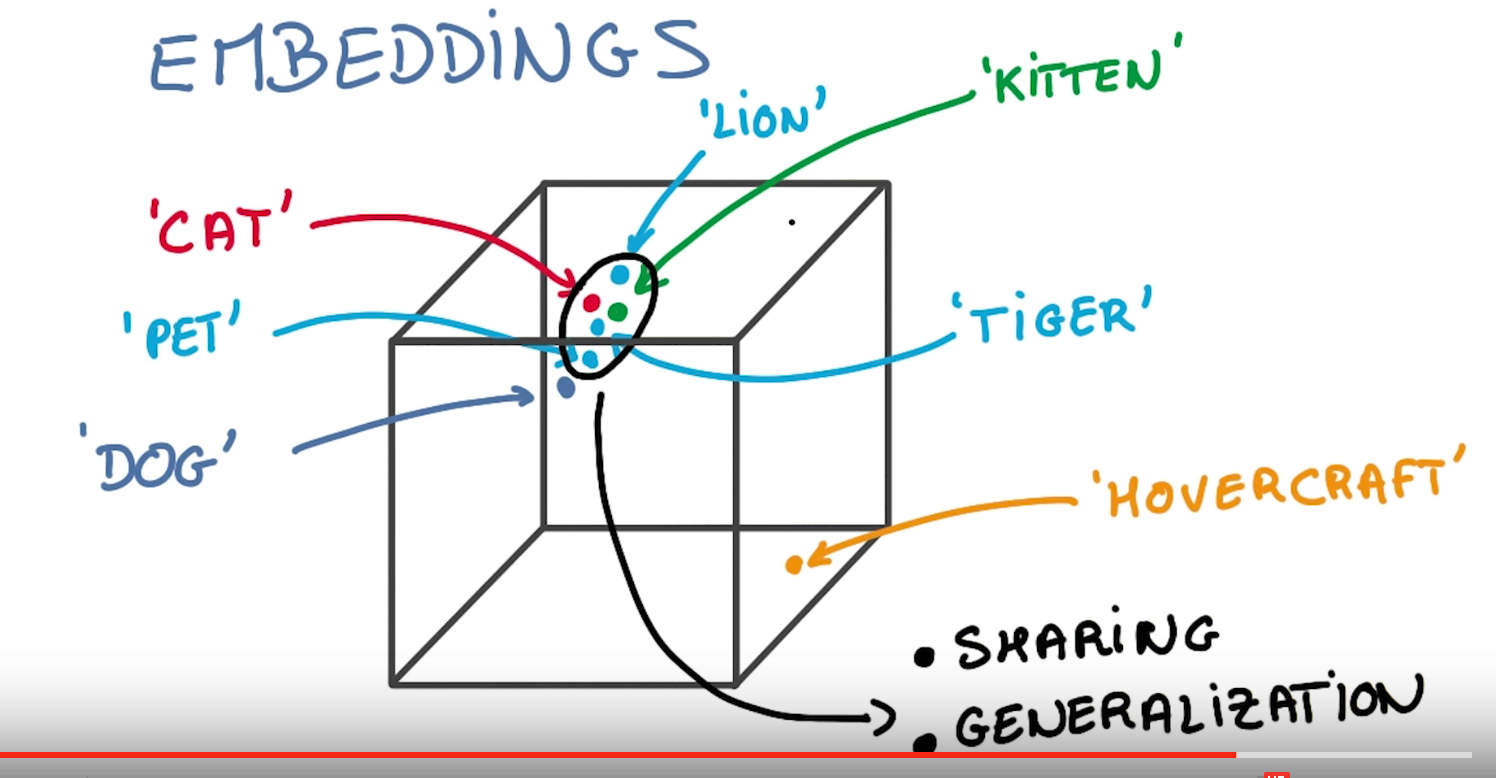 EMBEDDINGS
'KITTEN'
'LION'
'CAT'
'PET'
'TIGER'
'DOG'
'HOVERCRAFT'
• SHARING
• GENERALIZATION